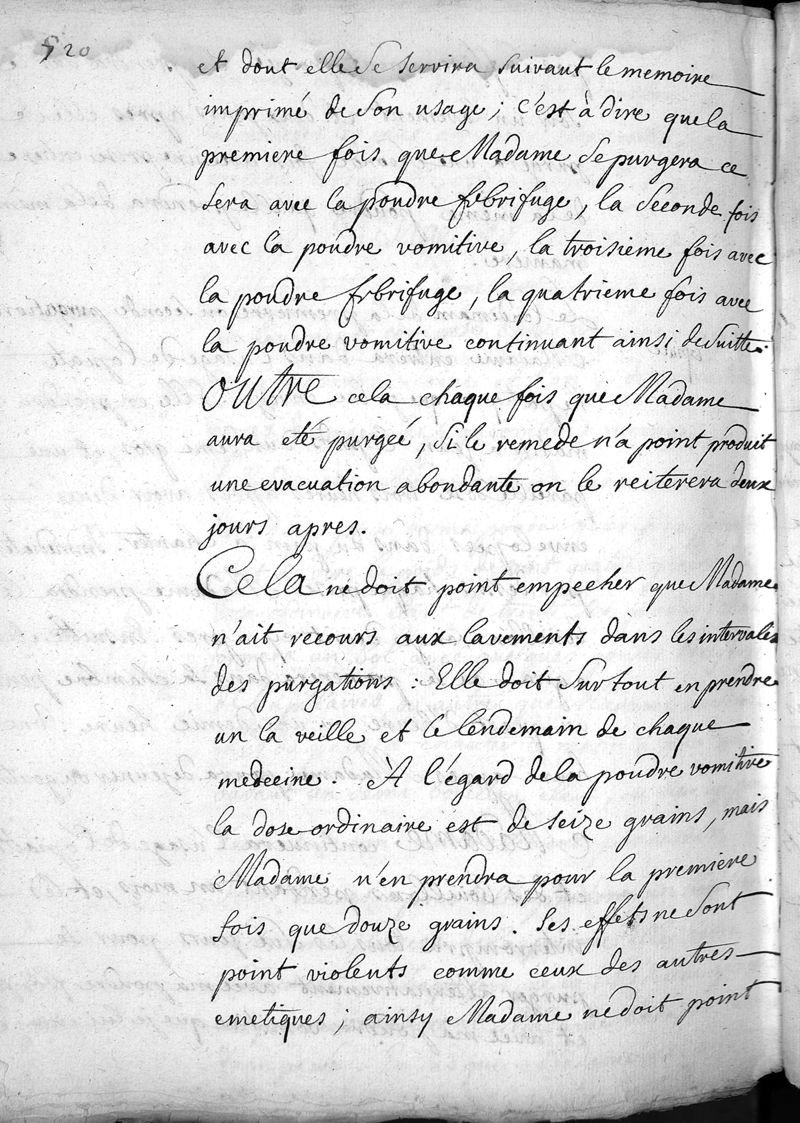 520
et dont elle se servira suivant le memoire
imprimé de son usage; c'est à dire que la
premiere fois que Madame se purgera ce
sera avec la poudre febrifuge, la seconde fois
avec la poudre vomitive, la troisieme fois avec
la poudre febrifuge, la quatrieme fois avec
la poudre vomitive continuant ainsi de suitte.
Outre cela chaque fois que Madame
aura eté purgeé, si le remede n'a point produit
une evacuation abondante on le reiterera deux
jours apres.
Cela ne doit point empecher que Madame
n'ait recours aux lavements dans les intervales
des purgations : Elle doit sur tout en prendre
un la veille et le lendemain de chaque
medecine. A l'égard de la poudre vomitive
la dose ordinaire est de seize grains, mais
Madame n'en prendra pour la premiere
fois que douze grains. Ses effets ne sont
point violents comme ceux des autres
emetiques; ainsy Madame ne doit point